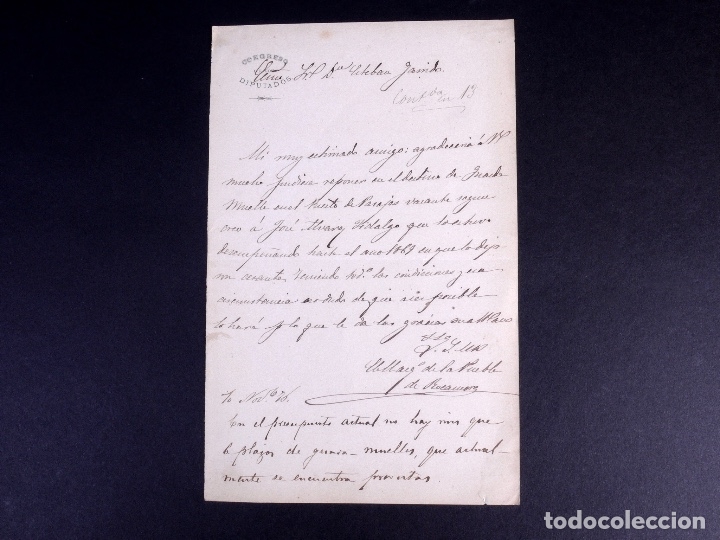 CONGRESO
DIPUTADOS
Sr. Dn Esteban Garrido
Contda en 13
Mi muy estimado amigo: agradeceria á V
mucho pudiera reponer en el destino de Guarda
Muelle en el Puerto de Pasajes vacante segun
creo á José Alvarez Hidalgo que lo estuvo
desempeñando hasta el año 1868 en que lo dejó
cesante, teniendo las condiciones
circunstancia no dudo de que si es posible
lo hará por lo que le da las gracias
El Marqs de la Puebla
de Rocamora
10 Nove 76.
En el presupuesto actual no hay mas que
6 plazas de guarda-muelles, que actual-
mente se encuentran provistas.
todocoleccion.net